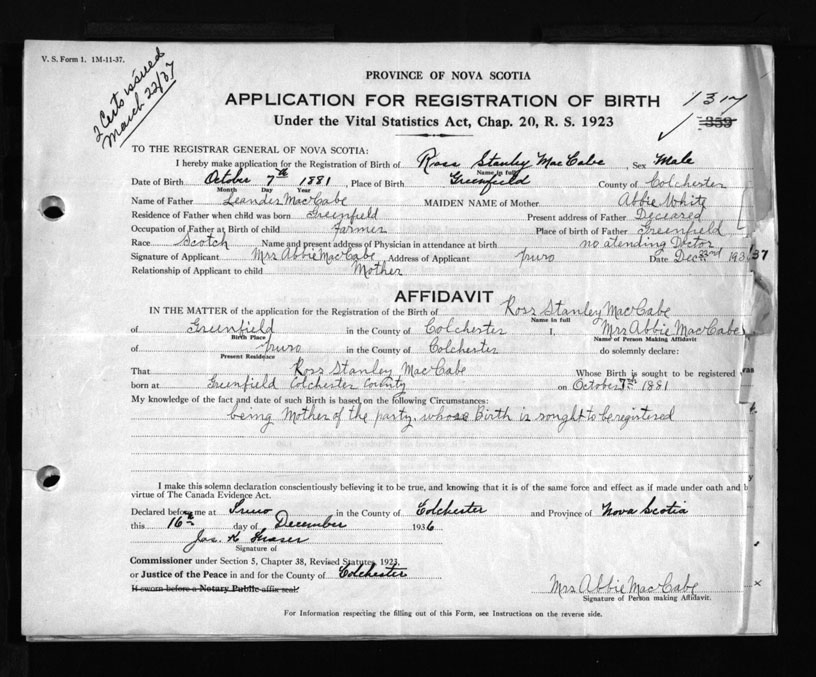 V. S. Form 1. 1M-11-37.
2 Certs issued
March 22/37
PROVINCE OF NOVA SCOTIA
APPLICATION FOR REGISTRATION OF BIRTH
Under the Vital Statistics Act, Chap. 20, R. S. 1923
1317
359
TO THE REGISTRAR GENERAL OF NOVA SCOTIA:
I hereby make application for the Registration of Birth of Ross Stanley MacCabe, Sex Male
Name in full
Date of Birth October 7th 1881, Place of Birth Greenfield County of Colchester
Month Day Year
Name of Father Leander MacCabe MAIDEN NAME of Mother Abbie White
Residence of Father when child was born Greenfield Present address of Father Deceased
Occupation of Father at Birth of child farmer Place of birth of Father Greenfield
Race Scotch Name and present address of Physician in attendance at birth no atending Doctor
Signature of Applicant Mrs Abbie MacCabe, Address of Applicant Truro Date Dec 23rd 193
Relationship of Applicant to child Mother
37
AFFIDAVIT
IN THE MATTER of the application for the Registration of the Birth of Ross Stanley MacCabe
Name in full
of Greenfield in the County of Colchester I, Mrs Abbie MacCabe
Birth Place Name of Person Making Affidavit
of Truro in the County of Colchester do solemnly declare:
Present Residence
That Ross Stanley MacCabe Whose Birth is sought to be registered was
born at Greenfield Colchester County on October 7th 1881
My knowledge of the fact and date of such Birth is based on the following Circumstances:
being Mother of the party whose Birth is sought to be registered
I make this solemn declaration conscientiously believing it to be true, and knowing that it is of the same force and effect as if made under oath and b
virtue of The Canada Evidence Act.
Declared before me at Truro in the County of Colchester and Province of Nova Scotia
this 16th day of December 1936
Jas. K Fraser
Signature of
Commissioner under Section 5, Chapter 38, Revised Statutes, 1923,
or Justice of the Peace in and for the County of Colchester
If sworn before a Notary Public affix seal
Mrs Abbie MacCabe
Signature of Person making Affidavit.
For Information respecting the filling out of this Form, see Instructions on the reverse side.